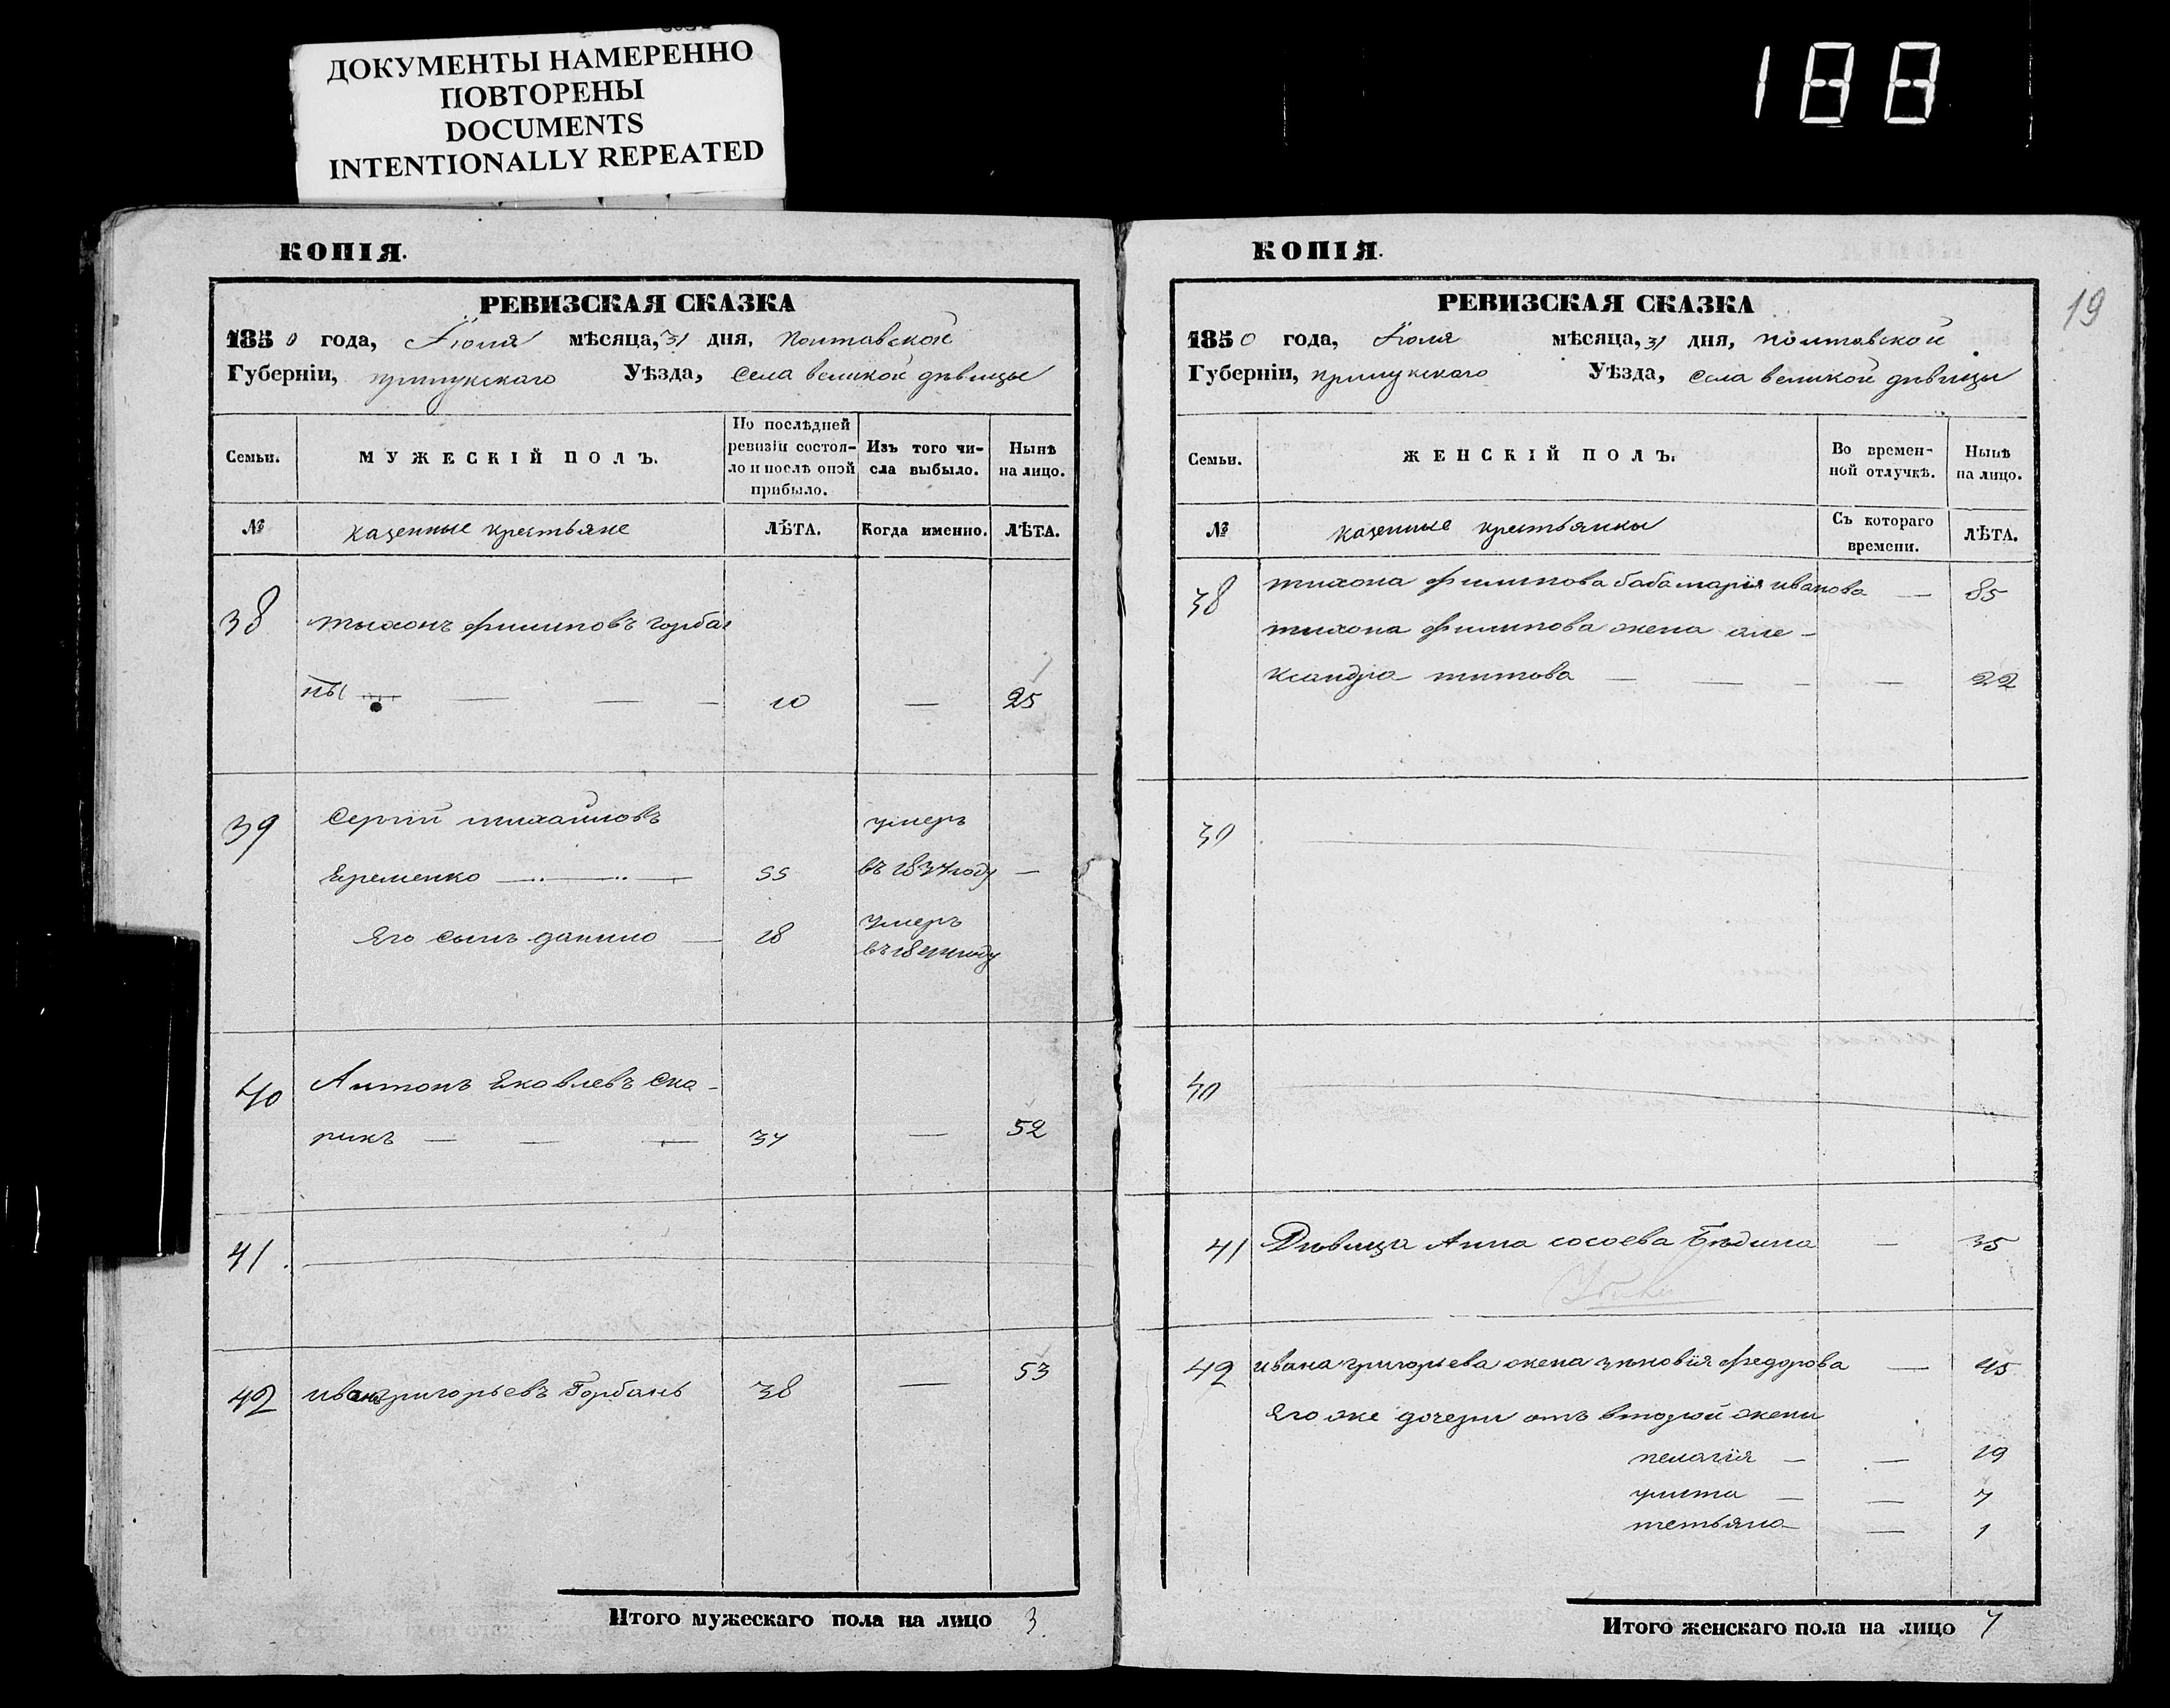 ДОКУМЕНТЫ НАМЕРЕННО
ПОВТОРЕНЫ
DOCUMENTS
INTENTIONALLY REPEATED
188
КОПІЯ.
РЕВИЗСКАЯ СКАЗКА
1850 года, Іюля мѣсяца, 31 дня, полтавской
Губерніи, прилукскаго Уѣзда, села великой дѣвицы
Семьи.
МУЖЕСКІЙ ПОЛЪ.
По послѣдней ревизіи состоя-
ло и послѣ оной прибыло.
Изъ того чи-
сла выбыло.
Нынѣ
на лицо.
№ казенные крестьяне ЛѢТА. Когда именно. ЛѢТА.
38 тыхонъ филиповъ горбаг
10 — 25
39 Сергій михайловъ умеръ
Яременко 55 въ 1837 году —
Его сынъ данило — 18 умеръ
40 Антонъ Яковлевъ Ска-
рикъ — — — 37 — 52
41.
42 иванъ григорьевъ Горбань 38 — 53
Итого мужескаго пола на лицо 3
КОПІЯ.
19
РЕВИЗСКАЯ СКАЗКА
1850 года, Іюля мѣсяца, 31 дня, полтавской
Губерніи, прилукскаго Уѣзда, села великой дѣвицы
Семьи.
ЖЕНСКІЙ ПОЛЪ.
Во времен-
ной отлучкѣ.
Нынѣ
на лицо.
№ казенные крестьянки Съ котораго
времени. ЛѢТА.
38 тихона филипова баба марія иванова — 85
тихона филипова жена але-
ксандра титова — — — — 22
39
40
41 Дѣвица Анна сосоева Бѣдина — 35
42 ивана григорьева жена зѣновія федорова — 45
Его же дочери отъ второй жены
пелагія — — 19
улита — — 7
тетьяна — — 1
Итого женскаго пола на лицо 7